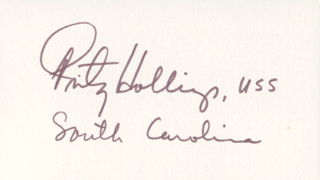 Fritz Hollings, USS
South Carolina